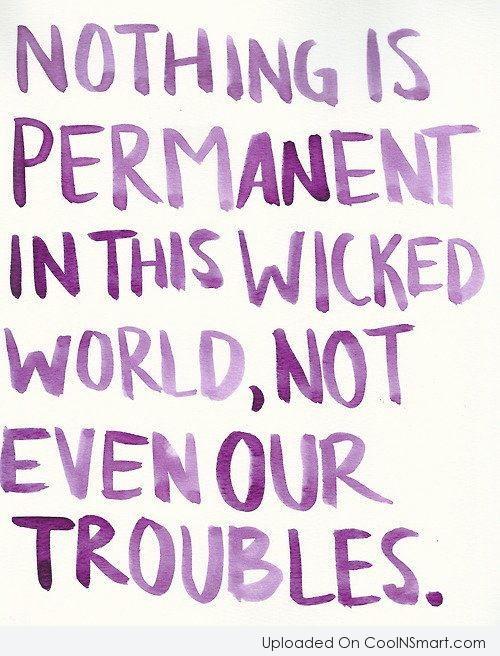 NOTHING IS
PERMANENT
IN THIS WICKED
WORLD, NOT
EVEN OUR
TROUBLES.
Uploaded On CoolNSmart.com